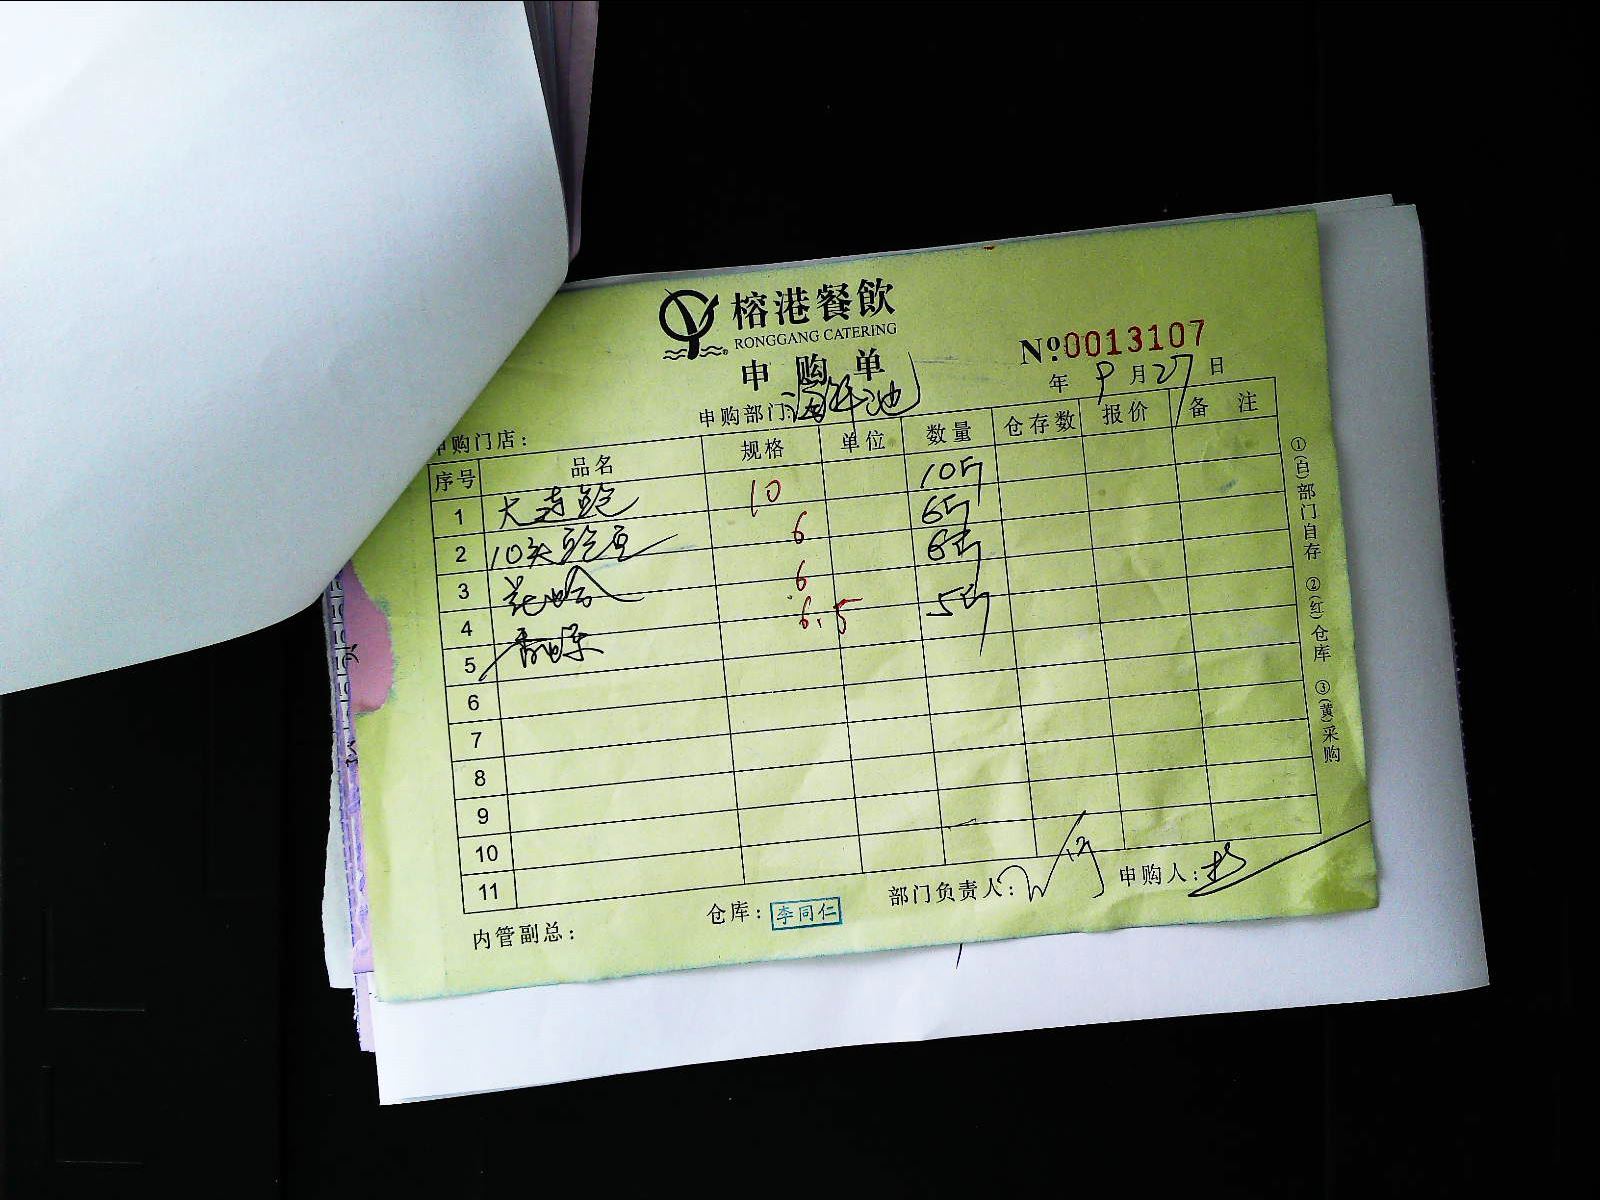 榕港餐飲
RONGGANG CATERING
申购单
№0013107
年 9月27日
申购部门:海鲜池
申购门店:
序号 品名 规格 单位 数量 仓存数 报价 备注
1 大连鲍 10 10斤
2 10头鲍 6 6斤
3 花蛤 6 6斤
4 6.5 5斤
5
6
7
8
9
10
11
①(白)部门自存 ②(红)仓库 ③(黄)采购
内管副总: 仓库:李同仁 部门负责人: 申购人: